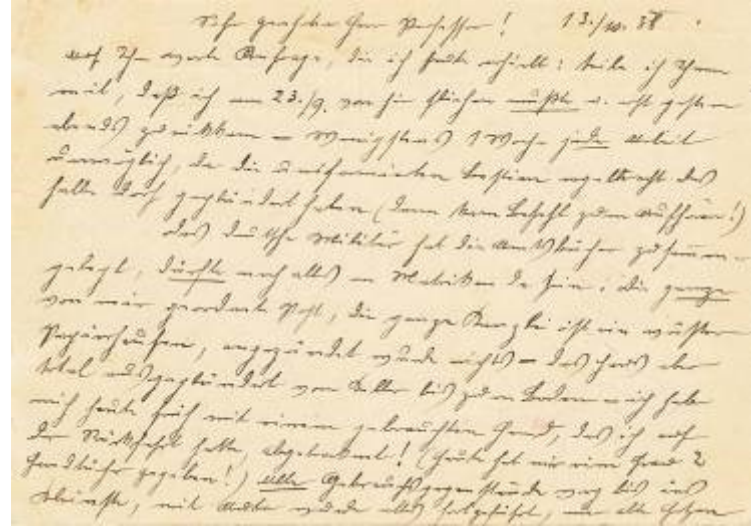 Sehr geehrter Herr Professor! 13./10. 38.
Auf Ihre werte Anfrage, die ich heute erhielt: teile ich Ihnen
mit, daß ich am 23./9. von hier flüchten mußte u. erst gestern
abends zurückkam – wenigstens 1 Woche jede Arbeit
unmöglich, da die uniformierten Bestien
alles geplündert haben (dann kam Befehl zum Aufhören!)
Das deutsche Militär hat die Amtsbücher zusammen-
gelegt, dürfte noch alles an Matriken da sein. Die ganze
von mir geordnete Post, die ganze Kanzlei ist ein wüster
Papierhaufen, angezündet wurde nichts – das Haus aber
total ausgeplündert vom Keller bis zum Boden – ich habe
mich heute früh mit einem gebrauchten Hemd, das ich auf
der Rückfahrt hatte, abgetrocknet! (Heute hat mir eine Frau 2
Handtücher gegeben!) Alle Gebrauchsgegenstände weg bis ins
Kleinste, mit Auto wurde alles fortgeführt, nur alte